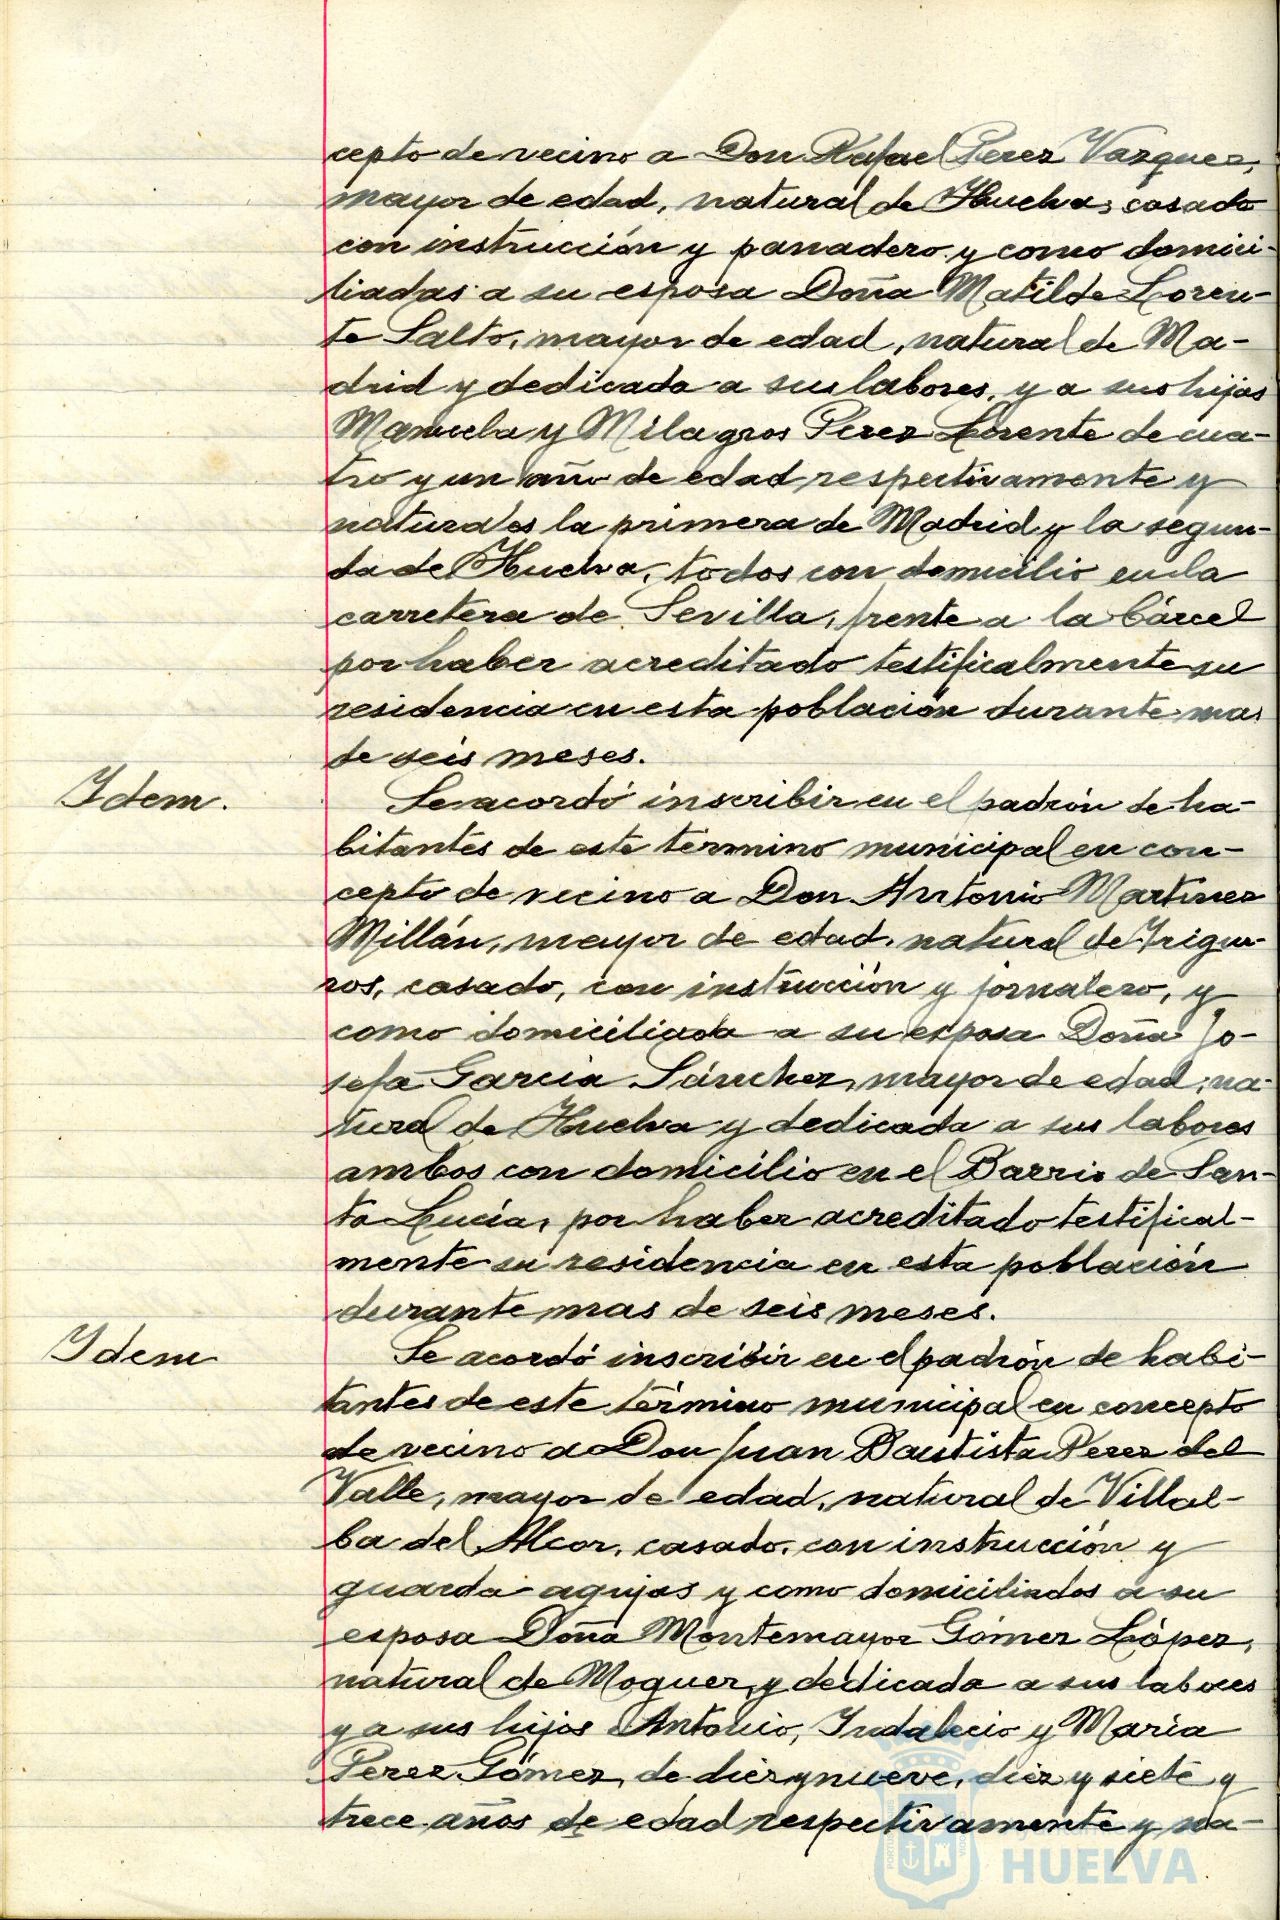 cepto de vecino a Don Rafael Perez Vazquez,
mayor de edad, natural de Huelva, casado
con instrucción y panadero y como domici-
liadas a su esposa Doña Matilde Loren-
te Salto, mayor de edad, natural de Ma-
drid y dedicada a sus labores, y a sus hijas
Manuela y Milagros Perez Lorente de cua-
tro y un año de edad respectivamente y
naturales la primera de Madrid y la segun-
da de Huelva, todos con domicilio en la
carretera de Sevilla, frente a la Cárcel
por haber acreditado testificalmente su
residencia en esta población durante mas
de seis meses.
Idem.
Se acordó inscribir en el padrón de ha-
bitantes de este término municipal en con-
cepto de vecino a Don Antonio Martinez
Millán, mayor de edad, natural de Trigue-
ros, casado, con instrucción y jornalero, y
como domiciliada a su esposa Doña Jo-
sefa Garcia Sánchez, mayor de edad, na-
tural de Huelva y dedicada a sus labores
ambos con domicilio en el Barrio de San-
ta Lucía, por haber acreditado testifical-
mente su residencia en esta población
durante mas de seis meses.
Idem
Se acordó inscribir en el padrón de habi-
tantes de este término municipal en concepto
de vecino a Don Juan Bautista Perez del
Valle, mayor de edad, natural de Villal-
ba del Alcor, casado, con instrucción y
guarda-agujas y como domiciliados a su
esposa Doña Montemayor Gómez López,
natural de Moguer, y dedicada a sus labores
y a sus hijos Antonio, Indalecio y María
Perez Gómez, de diez y nueve, diez y siete y
trece años de edad respectivamente y na-
HUELVA